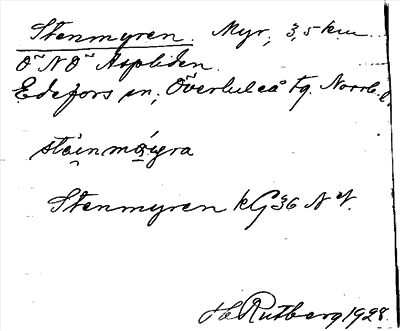 Stenmyren. Myr, 3,5 km
ÖNÖ Aspliden.
Edefors sn; Överluleå tg. Norrb. l.
stäinmöyra
Stenmyren kG36 NV.
H Rutberg 1928.